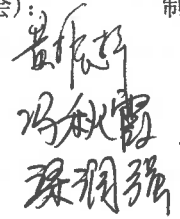 会）： 制
黄振辉
冯秋霞
梁润强